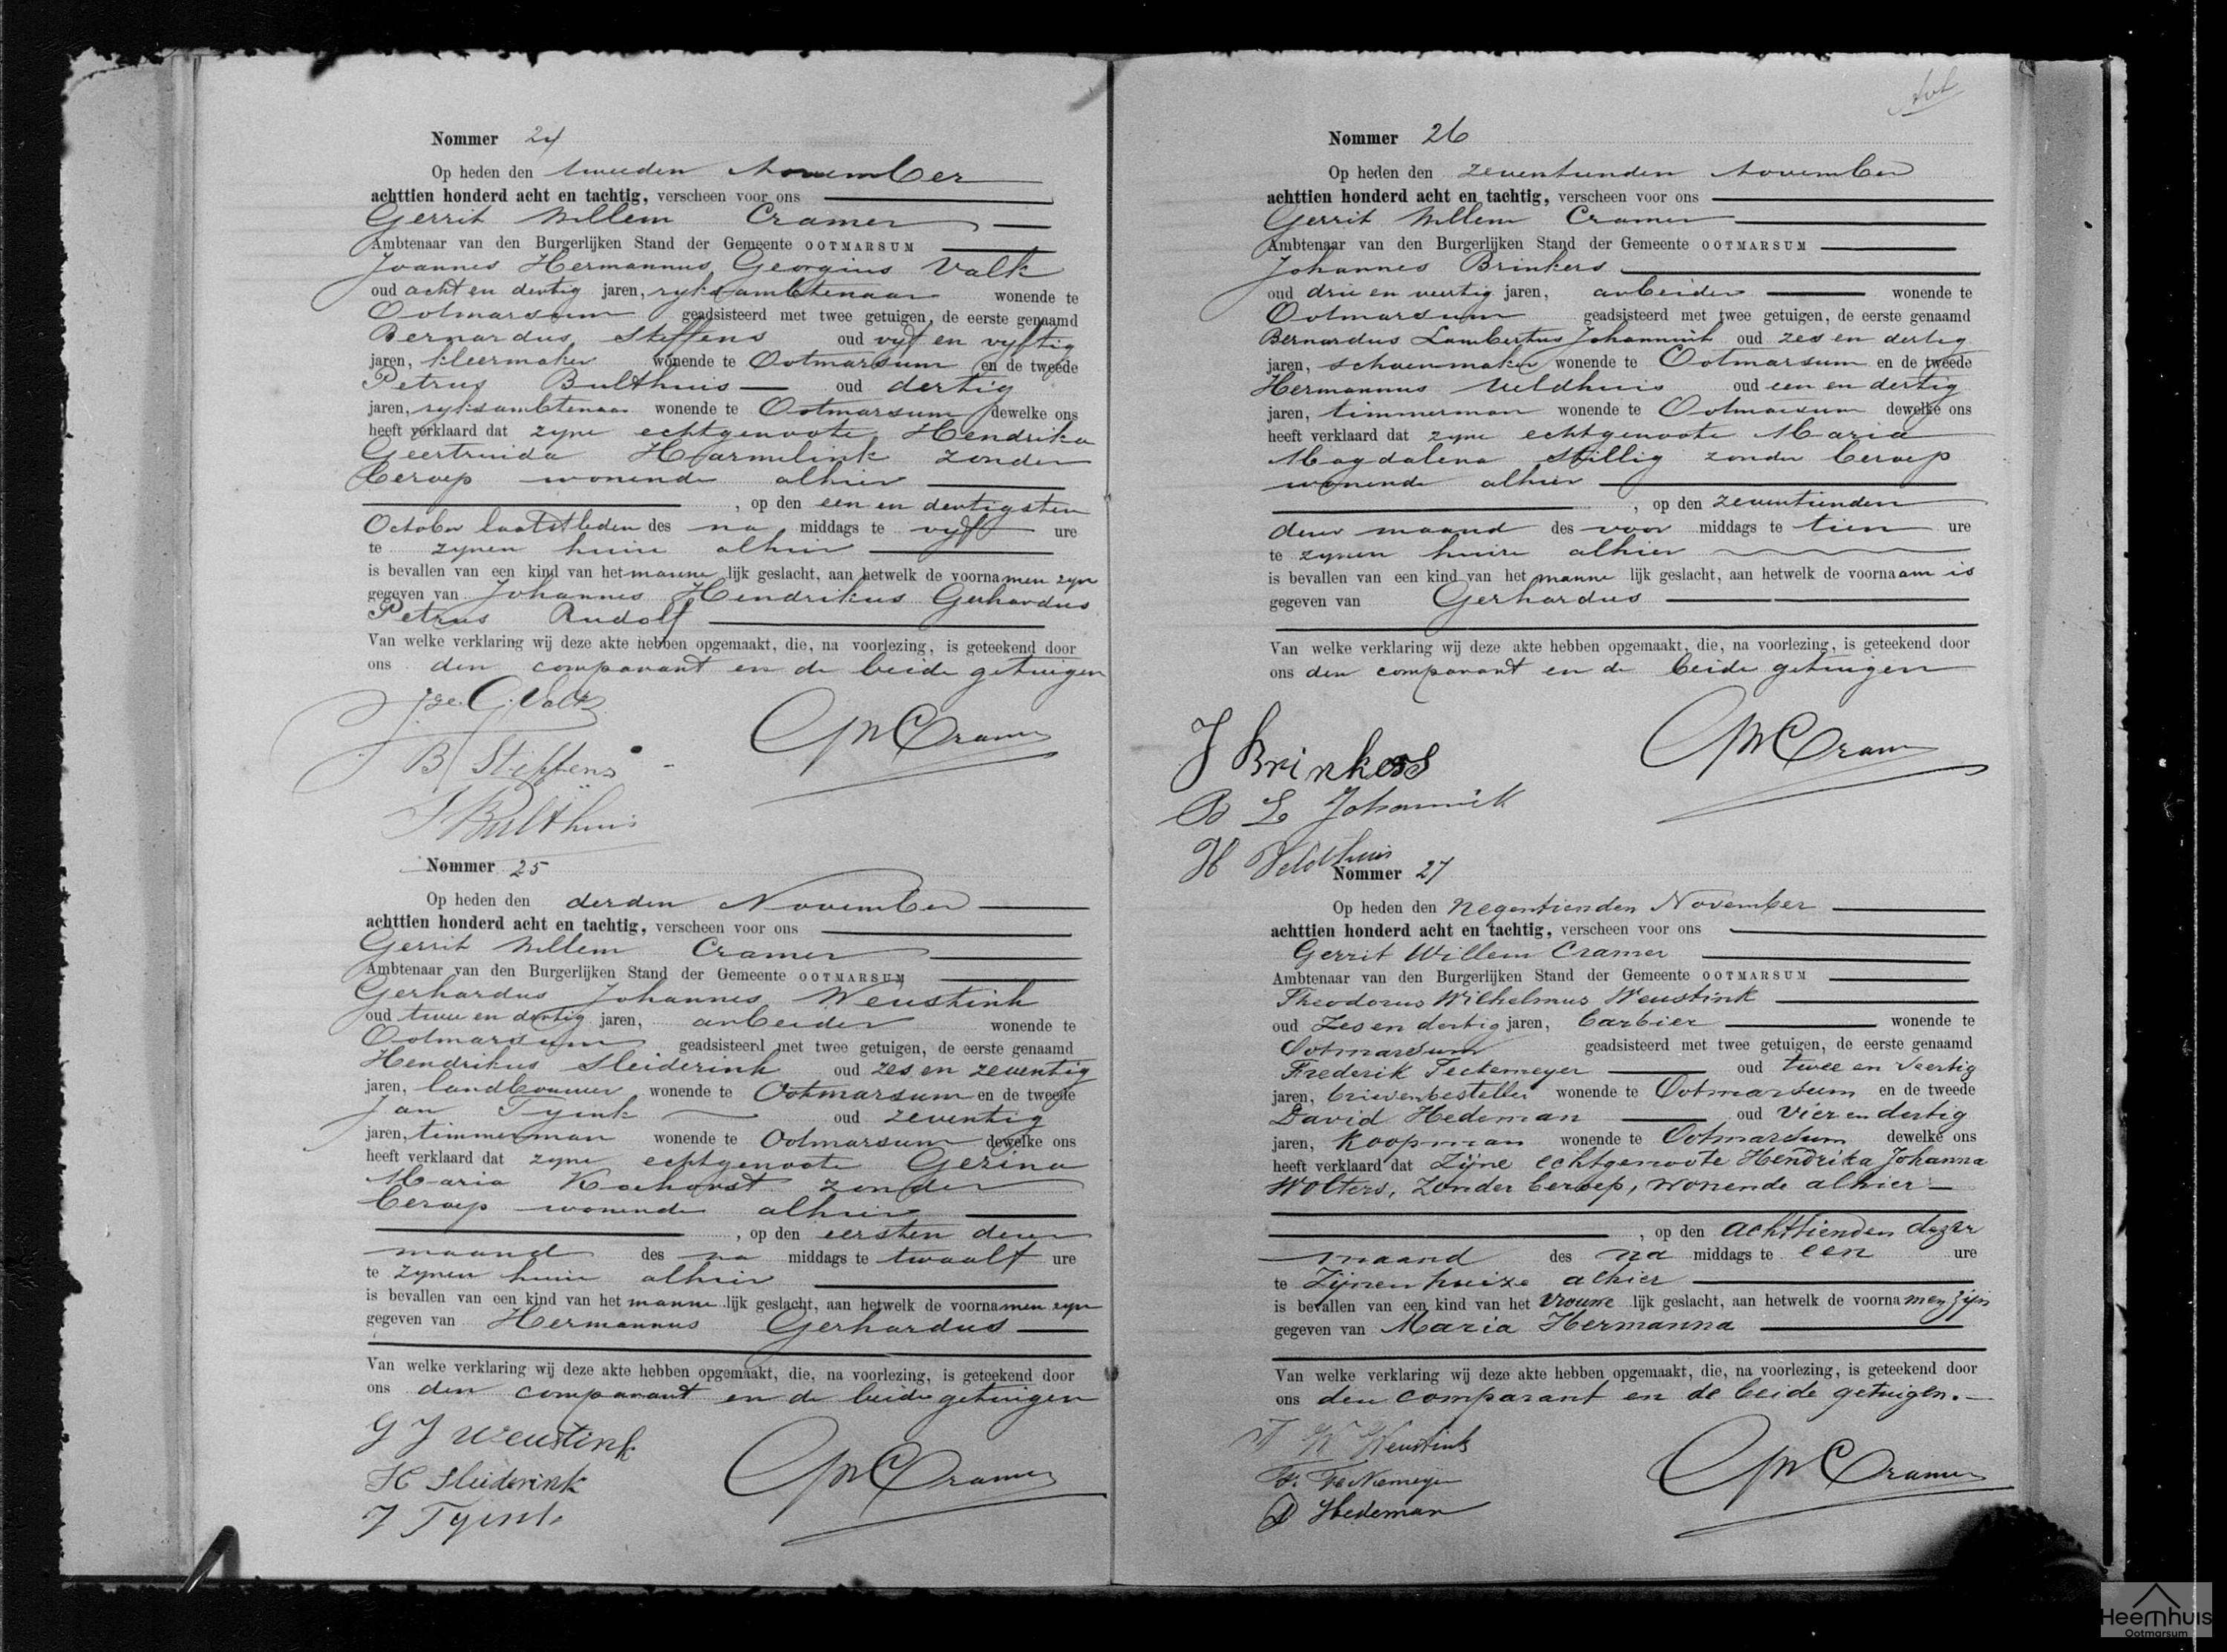 Nommer 24
Op heden den tweeden November
achttien honderd acht en tachtig, verscheen voor ons
Gerrit Willem Cramer
Ambtenaar van den Burgerlijken Stand der Gemeente OOTMARSUM
Joannes Hermannus Georgius Valk
oud acht en dertig jaren, ryksambtenaar wonende te
Ootmarsum geadsisteerd met twee getuigen, de eerste genaamd
Bernardus Steffens oud vyf en vyftig
jaren, kleermaker wonende te Ootmarsum en de tweede
Petrus Bulthuis oud dertig
jaren, ryksambtenaar wonende te Ootmarsum dewelke ons
heeft verklaard dat zyne echtgenoote Hendrika
Geertruida Harmelink zonder
beroep wonende alhier
, op den een en dertigsten
October laatstleden des na middags te vyf ure
te zynen huize alhier
is bevallen van een kind van het manne lijk geslacht, aan hetwelk de voornamen zyn
gegeven van Johannes Hendrikus Gerhardus
Petrus Rudolf
Van welke verklaring wij deze akte hebben opgemaakt, die, na voorlezing, is geteekend door
ons den comparant en de beide getuigen
Valk
GWCramer
B Steffens
Bulthuis
Nommer 25
Op heden den derden November
achttien honderd acht en tachtig, verscheen voor ons
Gerrit Willem Cramer
Ambtenaar van den Burgerlijken Stand der Gemeente OOTMARSUM
Gerhardus Johannes Weustink
oud twee en dertig jaren, arbeider wonende te
Ootmarsum geadsisteerd met twee getuigen, de eerste genaamd
Hendrikus Sleiderink oud zes en zeventig
jaren, landbouwer wonende te Ootmarsum en de tweede
Jan Tyink oud zeventig
jaren, timmerman wonende te Ootmarsum dewelke ons
heeft verklaard dat zyne echtgenoote Gezina
Maria Kochorst zonder
beroep wonende alhier
, op den eersten dezer
maand des na middags te twaalf ure
te zynen huize alhier
is bevallen van een kind van het manne lijk geslacht, aan hetwelk de voornamen zyn
gegeven van Hermannus Gerhardus
Van welke verklaring wij deze akte hebben opgemaakt, die, na voorlezing, is geteekend door
ons den comparant en de beide getuigen
G J Weustink
GWCramer
H Sleiderink
J Tyink
Nommer 26
Op heden den zeventienden November
achttien honderd acht en tachtig, verscheen voor ons
Gerrit Willem Cramer
Ambtenaar van den Burgerlijken Stand der Gemeente OOTMARSUM
Johannes Brinkers
oud drie en veertig jaren, arbeider wonende te
Ootmarsum geadsisteerd met twee getuigen, de eerste genaamd
Bernardus Lambertus Johannink oud zes en dertig
jaren, schoenmaker wonende te Ootmarsum en de tweede
Hermannus Veldhuis oud een en dertig
jaren, timmerman wonende te Ootmarsum dewelke ons
heeft verklaard dat zyne echtgenoote Maria
Magdalena Stillig zonder beroep
wonende alhier
, op den zeventienden
dezer maand des voor middags te tien ure
te zynen huize alhier
is bevallen van een kind van het manne lijk geslacht, aan hetwelk de voornaam is
gegeven van Gerhardus
Van welke verklaring wij deze akte hebben opgemaakt, die, na voorlezing, is geteekend door
ons den comparant en de beide getuigen
J Brinkers
GWCramer
B L Johannink
H Veldhuis
Nommer 27
Op heden den Negentienden November
achttien honderd acht en tachtig, verscheen voor ons
Gerrit Willem Cramer
Ambtenaar van den Burgerlijken Stand der Gemeente OOTMARSUM
Theodorus Wilhelmus Weustink
oud Zes en dertig jaren, barbier wonende te
Ootmarsum geadsisteerd met twee getuigen, de eerste genaamd
Frederik oud twee en veertig
jaren, brievenbesteller wonende te Ootmarsum en de tweede
David Hedeman oud vier en dertig
jaren, koopman wonende te Ootmarsum dewelke ons
heeft verklaard dat Zijne echtgenoote Hendrika Johanna
Wolters, zonder beroep, wonende alhier
, op den achttienden dezer
maand des na middags te een ure
te Zijnen huize alhier
is bevallen van een kind van het vrouwe lijk geslacht, aan hetwelk de voornamen zijn
gegeven van Maria Hermanna
Van welke verklaring wij deze akte hebben opgemaakt, die, na voorlezing, is geteekend door
ons den comparant en de beide getuigen.
T W Weustink
GWCramer
F.
D Hedeman
Heemhuis
Ootmarsum